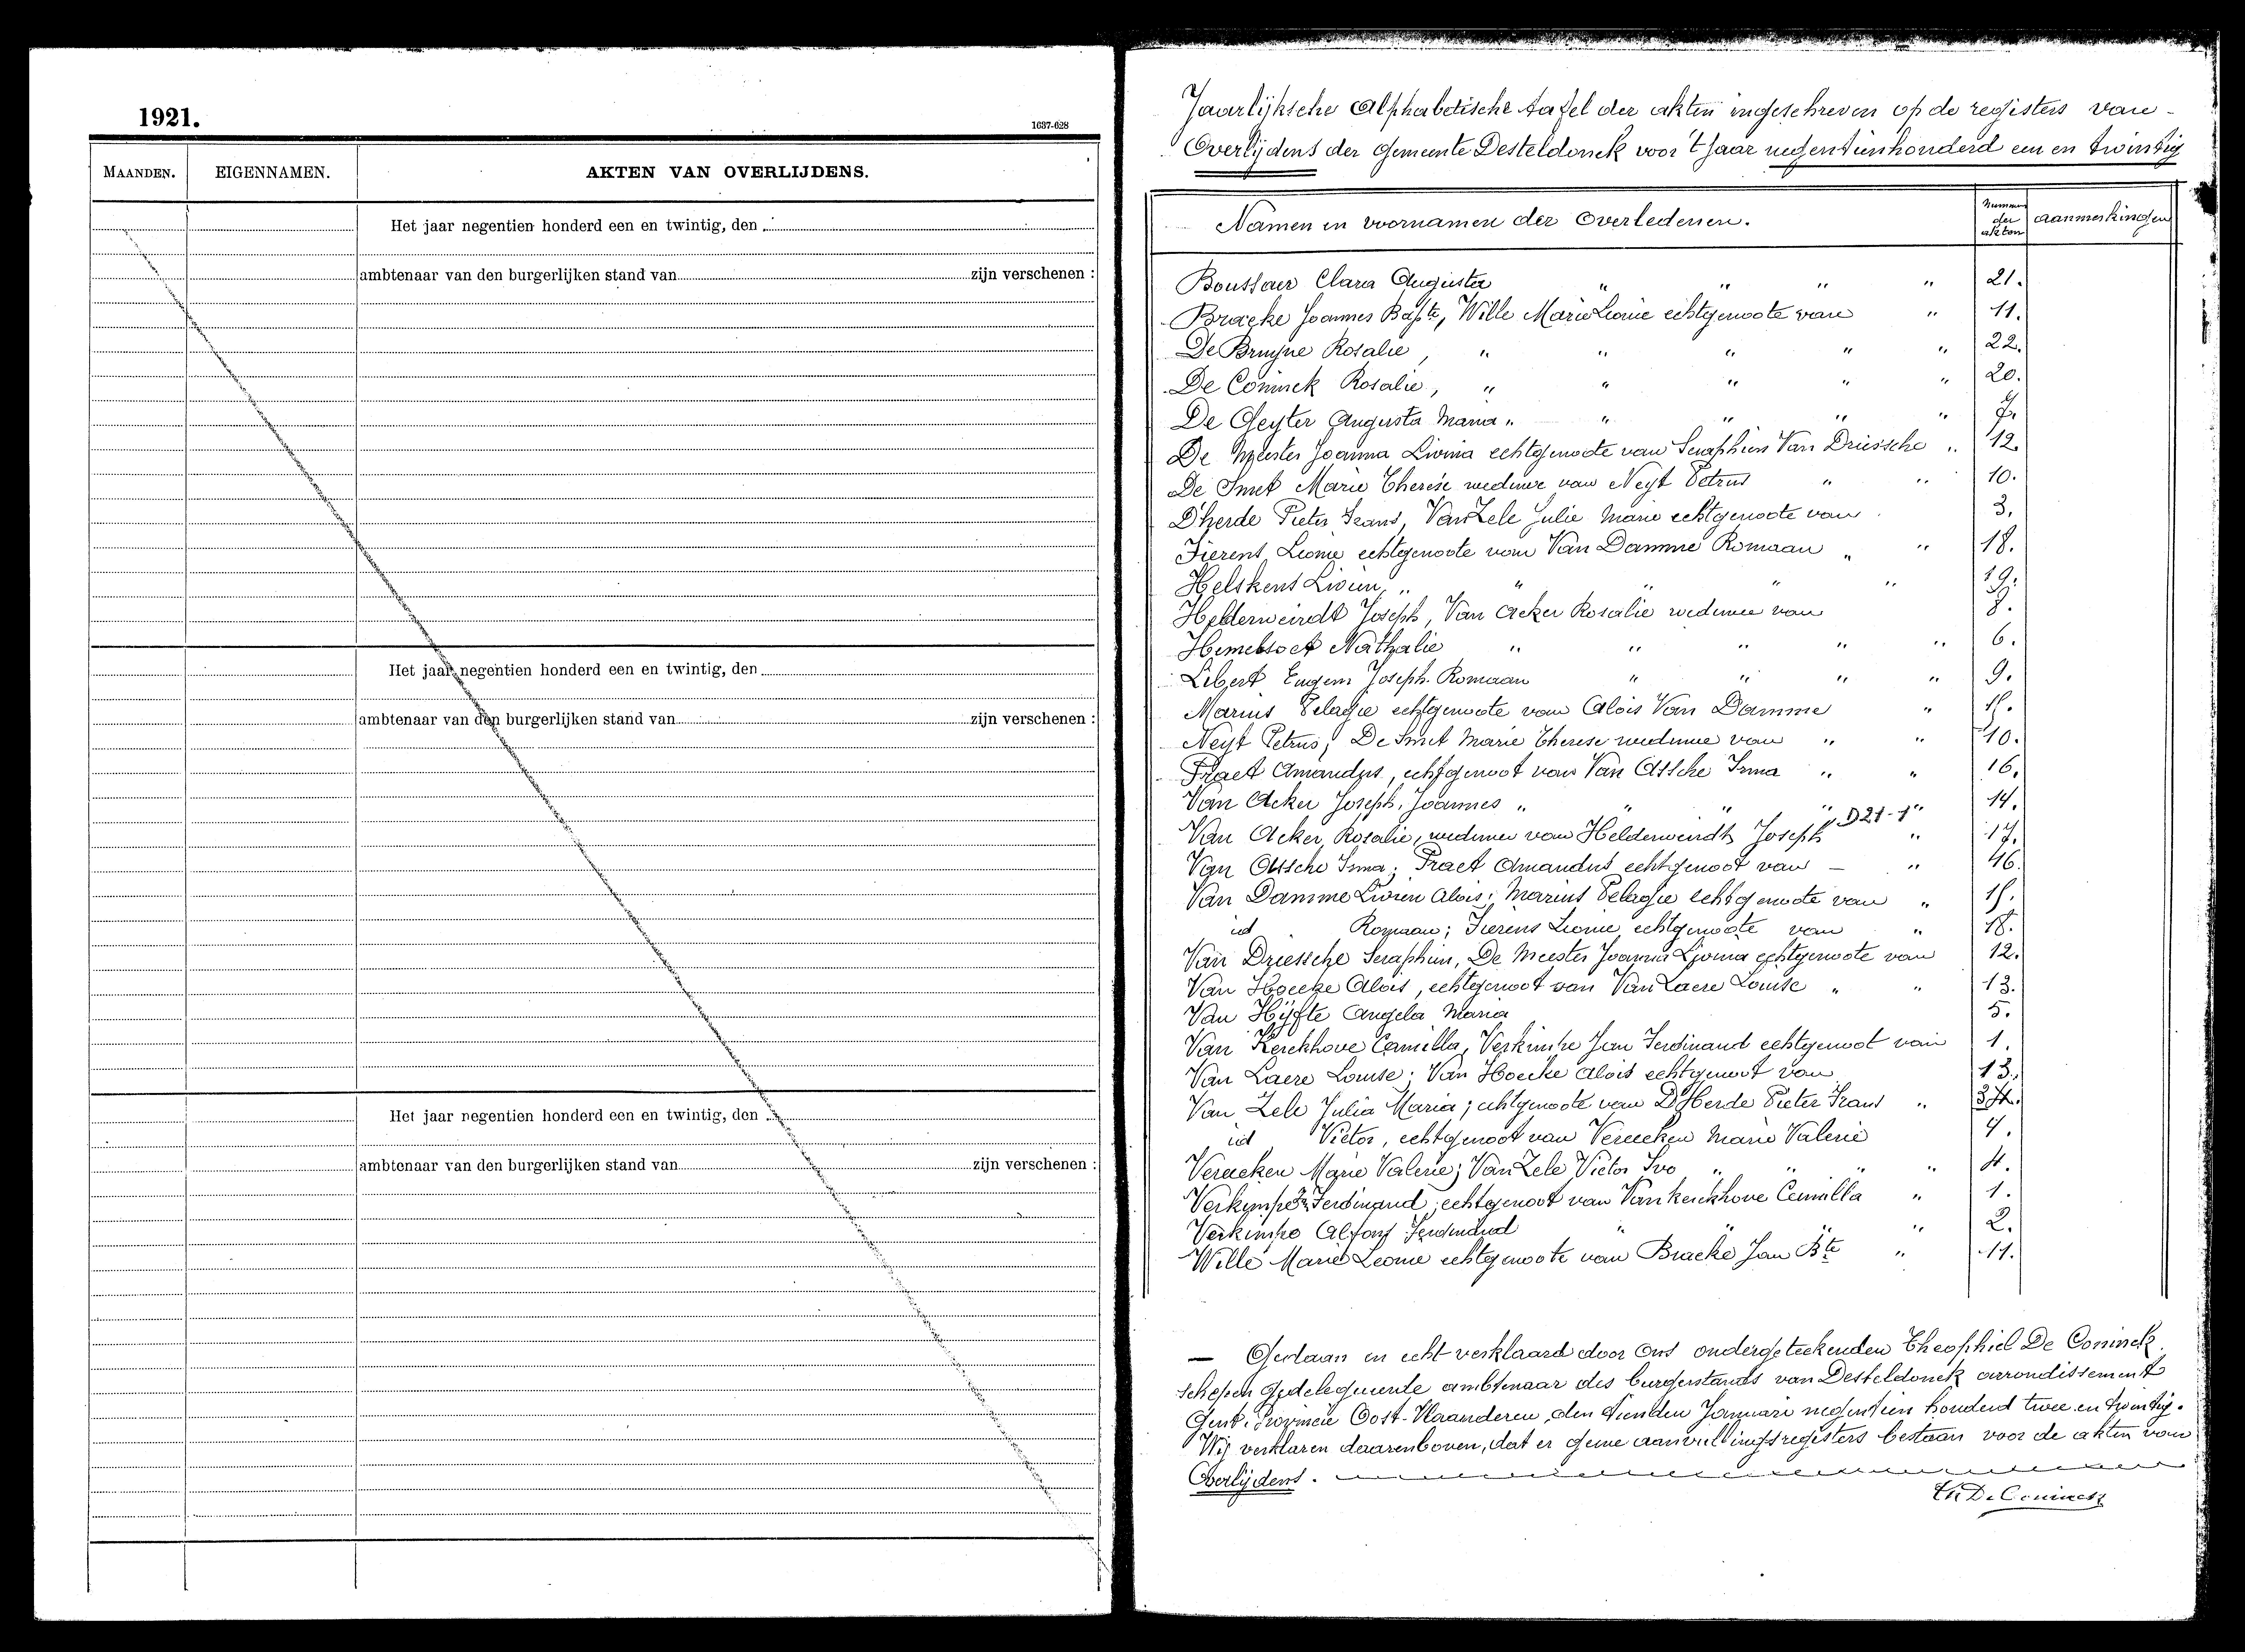 1921.
1637-628
MAANDEN.
EIGENNAMEN.
AKTEN VAN OVERLIJDENS.
Het jaar negentien honderd een en twintig, den
ambtenaar van den burgerlijken stand van zijn verschenen :
Het jaar negentien honderd een en twintig, den
ambtenaar van den burgerlijken stand van zijn verschenen :
Het jaar negentien honderd een en twintig, den
ambtenaar van den burgerlijken stand van zijn verschenen :
Jaarlijksche Alphabetische tafel der akten ingeschreven op de registers van
Overlijdens der Gemeente Desteldonck voor 't Jaar negentienhonderd een en twintig
Namen en voornamen der Overledenen. Nummers der akten aanmerkingen
Clara Augusta " " " " 21.
Bracke Joannes Bapte, Wille Marie Leonie echtgenoote van " 11.
De Bruyne Rosalie, " " " " " 22.
De Coninck Rosalie, " " " " " 20.
De Geyter Augusta Maria " " " " " 7.
De Meester Joanna Livina echtgenoote van Seraphien Van Driessche " 12.
De Smet Marie Therese weduwe van Neyt Petrus " " 10.
D'herde Pieter Frans, Van Zele Julie Marie echtgenoote van 3.
Fierens Leonie echtgenoote van Van Damme Romaan " " 18.
Helskens Livien, " " " " " 19.
Helderweirdt Joseph, Van Acker Rosalie weduwe van
Nathalie " " " " " 6.
Libert Eugeen Joseph Romaan " " " " 9.
Marius Pelagie echtgenoote van Alois Van Damme " 15.
Neyt Petrus, De Smet Marie Therese weduwe van " " 10.
Praet Amandus, echtgenoot van Van Assche Irma " " 16.
Van Acker Joseph, Joannes " " " " " 14.
Van Acker Rosalie, weduwe van Helderweirdt Joseph D21-1 " 17.
Van Assche Irma; Praet Amandus echtgenoot van — " 16.
Van Damme Livien Alois; Marius Pelagie echtgenoote van " 15.
id Romaan; Fierens Leonie echtgenoote van " 18.
Van Driessche Seraphien, De Meester Joanna Livina echtgenoote van 12.
Van Hoecke Alois, echtgenoot van Van Laere Louise " " 13.
Van Hijfte Angela Maria 5.
Van Kerckhove Camilla, Verkimpe Jan Ferdinand echtgenoot van 1.
Van Laere Louise; Van Hoecke Alois echtgenoot van 13.
Van Zele Julia Maria; echtgenoote van D'Herde Pieter Frans "
id Victor, echtgenoot van Vereecken Marie Valerie 4.
Vereecken Marie Valerie; Van Zele Victor Ivo " " " " 4.
Verkimpe Jn Ferdinand, echtgenoot van Van kerckhove Camilla " 1.
Verkimpe Alfons Ferdinand " " " 2.
Wille Marie Leonie echtgenoote van Bracke Jan Bte " 11.
— Gedaan en echt verklaard door Ons ondergeteekenden Theophiel De Coninck
schepen Gedelegueerde ambtenaar des burgerstands van Desteldonck arrondissement
Gent, Provincie Oost-Vlaanderen, den tienden Januari negentien honderd twee en twintig.
Wij verklaren daarenboven, dat er geene aanvullingsregisters bestaan voor de akten van
Overlijdens.
Th De Coninck